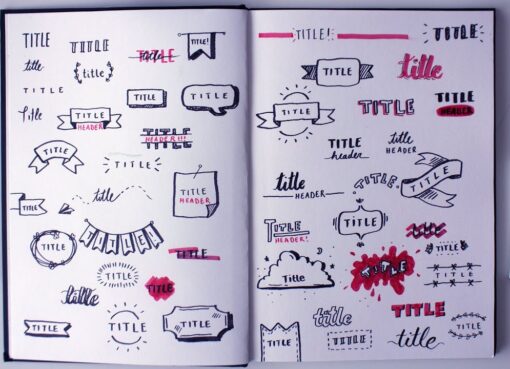 TITLE
TITLE
title
TITLE!
title
title
TITLE
TITLE
TITLE
title
TITLE
HEADER
TITLE
HEADER!!!
TITLE
TITLE
title
TITLE
HEADER
TITLE
TITLE
TITLE
TITLE
TITLE
title
TITLE
TITLE
TITLE
TITLE!
TITLE
TITLE
title
TITLE
TITLE
TITLE
HEADER
TITLE
header
title
HEADER
title
HEADER
TITLE
TITLE
TITLE
HEADER!
TITLE
TITLE
Title
TITLE
TITLE
title
TITLE
TITLE
TITLE
title
TITLE